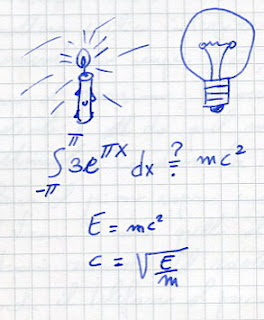 ∫_{-π}^{π} 3e^{πx} dx ≟ mc²
E = mc²
c = √(E/m)